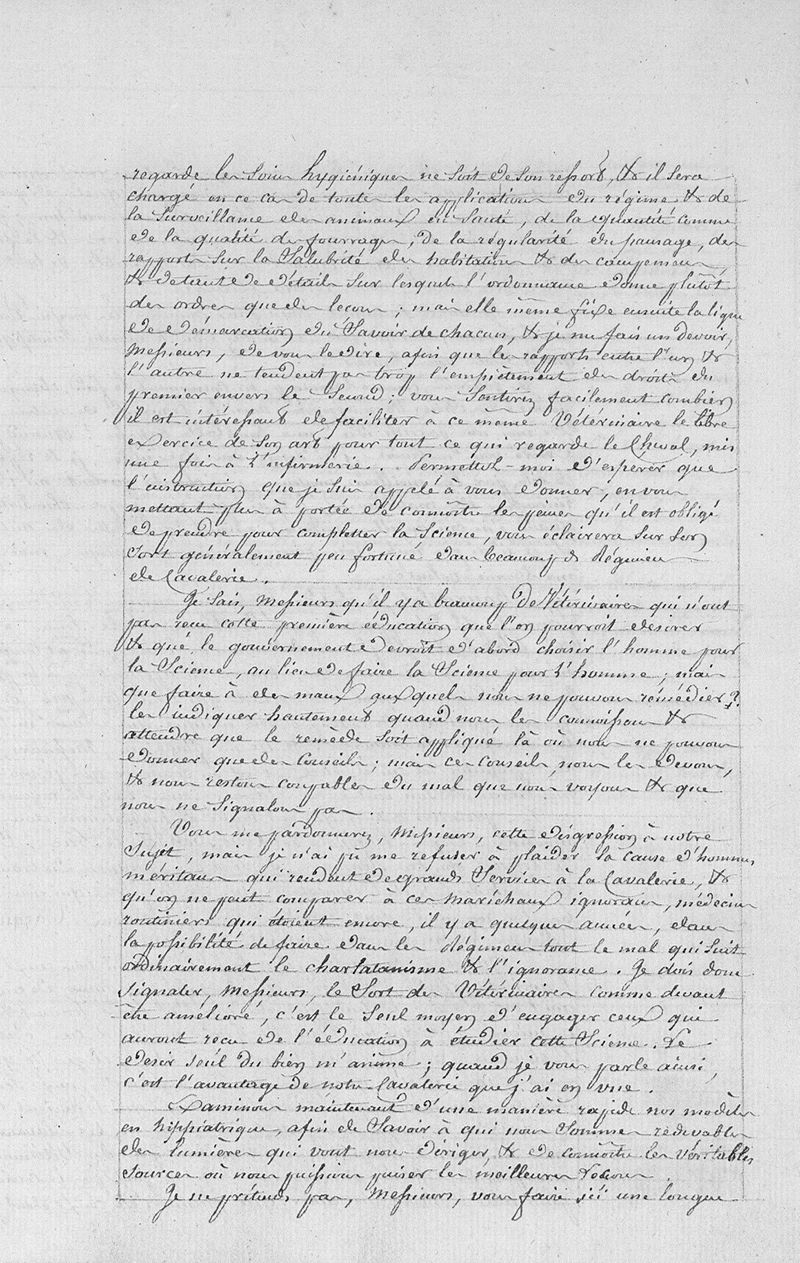 regarde les soins hygiéniques ne soit de son ressort, & il sera
chargé en ce cas de toutes les applications du régime & de
la surveillance des animaux en santé, de la quantité comme
de la qualité des fourrages, de la régularité du pansage, des
rapports sur la salubrité des habitations & des campemens
& de tant de détails sur lesquels l'ordonnance donne plûtôt
des ordres que des leçons ; mais elle même fixe ensuite la ligne
de démarcation du savoir de chacun, & je me fais un devoir,
Messieurs, de vous le dire, afin que les rapports entre l'un &
l'autre ne tendent pas trop l'empiètement des droits du
premier envers le second ; vous sentirez facilement combien
il est intéressant de faciliter à ce même Vétérinaire le libre
exercice de son art pour tout ce qui regarde le Cheval, mis
une fois à l'infirmerie. Permettez-moi d'espérer que
l'instruction que je suis appelé à vous donner, en vous
mettant plus à portée de connoitre les peines qu'il est obligé
de prendre pour completter la science, vous éclairera sur son
sort généralement peu fortuné dans beaucoup de Régimens
de Cavalerie.
Je sais, Messieurs qu'il y a beaucoup de Vétérinaires qui n'ont
pas reçu cette première éducation que l'on pourroit desirer
& que, le gouvernement devroit d'abord choisir l'homme pour
la Science, au lieu de faire la Science pour l'homme ; mais
que faire à des maux auxquels nous ne pouvons remédier ?
les indiquer hautement quand nous les connoissons &
attendre que le remède soit appliqué là où nous ne pouvons
donner que des Conseils ; mais ces conseils nous les devons,
& nous restons coupables du mal que nous voyons & que
nous ne signalons pas.
Vous me pardonnerez, Messieurs, cette digression à notre
sujet, mais je n'ai pu me refuser à plaider la cause d'hommes
méritans qui rendent de grands services à la Cavalerie, &
qu'on ne peut comparer à ces maréchaux ignorans, médecins
routiniers qui étoient encore, il y a quelques années, dans
la possibilité de faire dans les Régimens tout le mal qui suit
ordinairement le charlatanisme & l'ignorance. Je dois donc
signaler, Messieurs, le sort des Vétérinaires comme devant
être amélioré, c'est le seul moyen d'engager ceux qui
auront reçu de l'éducation à étudier cette Science. Le
desir seul du bien m'anime ; quand je vous parle ainsi,
c'est l'avantage de notre Cavalerie que j'ai en vue.
Examinons maintenant d'une manière rapide nos modèles
en hippiatrique, afin de savoir à qui nous sommes redevables
des lumières qui vont nous diriger, & de connoitre les véritables
sources où nous puissions puiser les meilleures leçons.
Je ne prétends pas, Messieurs, vous faire ici une longue